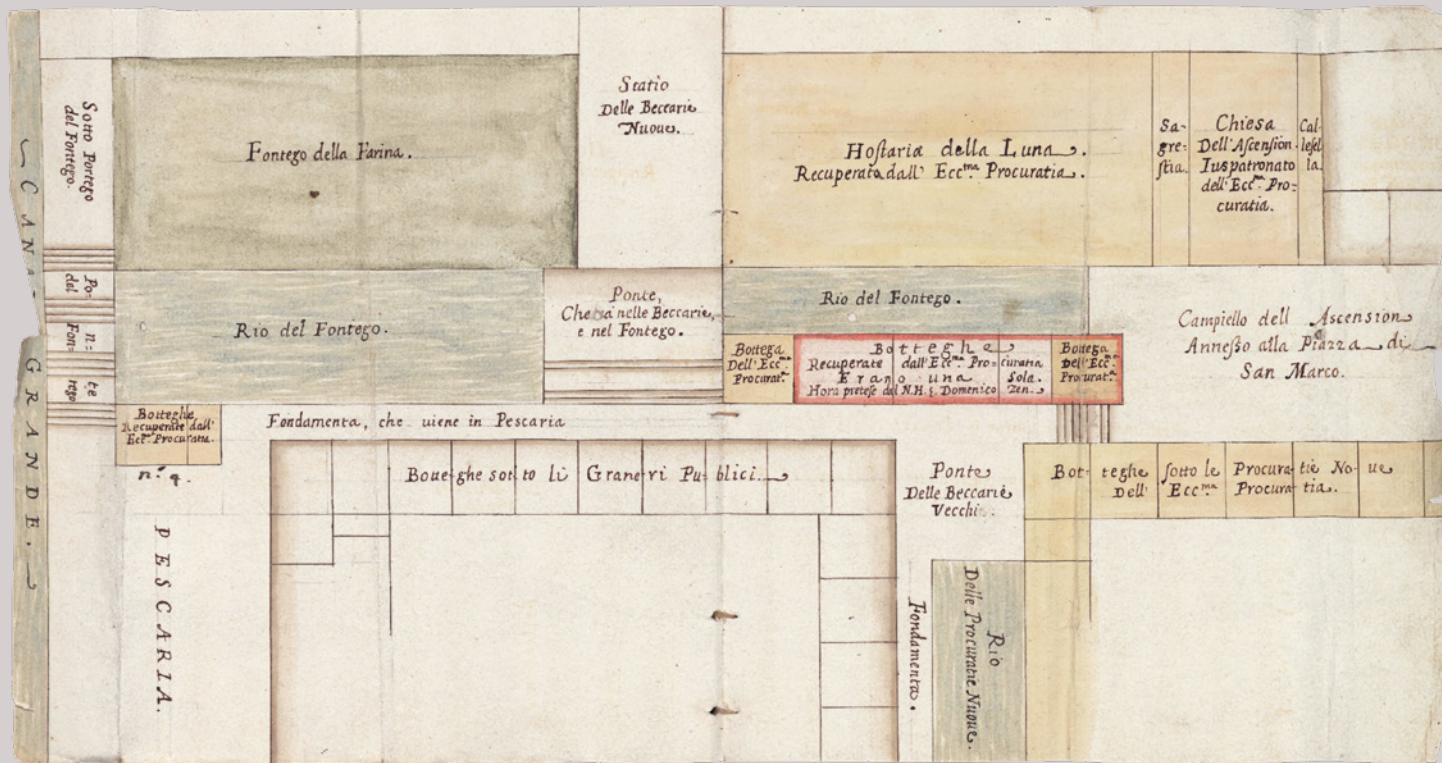 CANAL GRANDE.
Sotto Portego
del Fontego.
Fontego della Farina.
Statio
Delle Beccarie
Nuoue.
Hostaria della Luna.
Recuperata dall' Ecc.ma Procuratia.
Sa-
gre-
stia.
Chiesa
Dell'Ascension
Iuspatronato
dell'Ecc.ma Pro=
curatia.
Cal
lesel
la.
Po- n= te
del Fon= tego
Rio del Fontego.
Ponte,
Che và nelle Beccarie,
e nel Fontego.
Rio del Fontego.
Campiello dell Ascension
Annesso alla Piazza di
San Marco.
Bottega
Dell'Ecc.ma
Procurat.a
Botteghe
Recuperate dall'Ecc.ma Procuratia
Erano una Sola.
Hora pretese dal N.H. s. Domenico Zen.
Bottega
Dell'Ecc.ma
Procurat.a
Botteghe
Recuperate dall'
Ecc.ma Procuratia.
n.o 4.
Fondamenta, che uiene in Pescaria
Boteghe sotto li Graneri Publici.
Ponte
Delle Beccarie
Vecchie.
Botteghe sotto le Procuratie Noue
Dell' Ecc.ma Procuratia.
PESCARIA.
Fondamenta.
Rio
Delle Procuratie Nuoue.